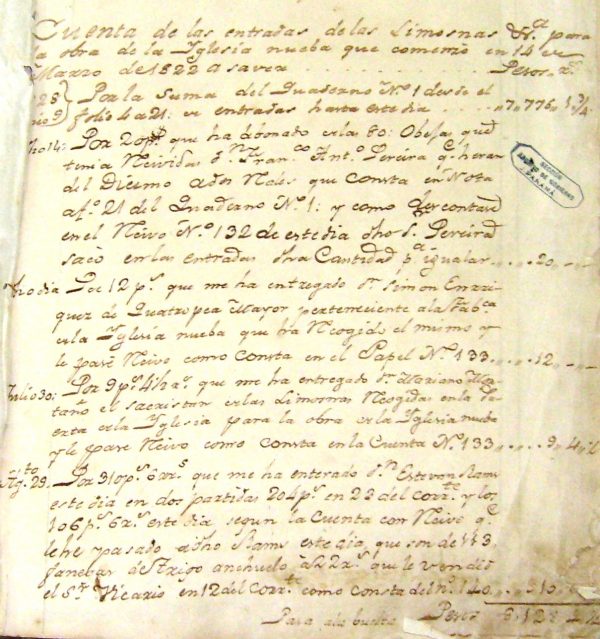 Cuenta de las entradas de las Limosnas &a. para
la obra de la Yglesia nueba que comenzó en 14 de
Marzo de 1822 a saver Pesos rs.
Por la suma del Quaderno No. 1 desde el
folio 4 a 21: de entradas hasta este dia 7,776, 1 3/4
14: Por 20 ps. que ha abonado de las 80: Obejas que
tenia Reividas Dn. Franco. Anto. Pereira qe. heran
del Diesmo a dos Rs. que consta en Nota
a fo. 21 del Quaderno No. 1: y como
en el Reivo No. 132 de este dia dho Sr. Pereira
sacó en las entradas dha Cantidad pa. igualar 20
dho dia Por 12 ps. que me ha entregado Dn. Simon Enrri-
quez de Quatropea Mayor perteneciente a la Fabca.
de la Yglesia nueba que ha Recogido el mismo y
le pasé Reivo como consta en el Papel No. 133 12
Julio 30: Por 9 ps. 4 1/2 rs. que me ha entregado Dn. Mariano
tano el sacristan de las Limosnas Recogidas en la
de la Yglesia para la obra de la Yglesia nueba
y le pasé Reivo como consta en la Cuenta No. 133 9, 4 1/2
Agto. 29. Por 310 ps. 6 rs. que me ha enterado Dn. Estevan Rams
este dia en dos partidas 204 ps. en 23 del corrte. y los
106 ps. 6 rs. este dia, segun la Cuenta con Reivo qe.
le he pasado a dho Rams este dia, que son de 113
fanegas de Trigo anchuelo a 22 rs. que le vendió
el Sr. Vicario en 12 del corrte. como consta del No. 140 310
Para a la buelta Pesos
SECCION
PANAMA